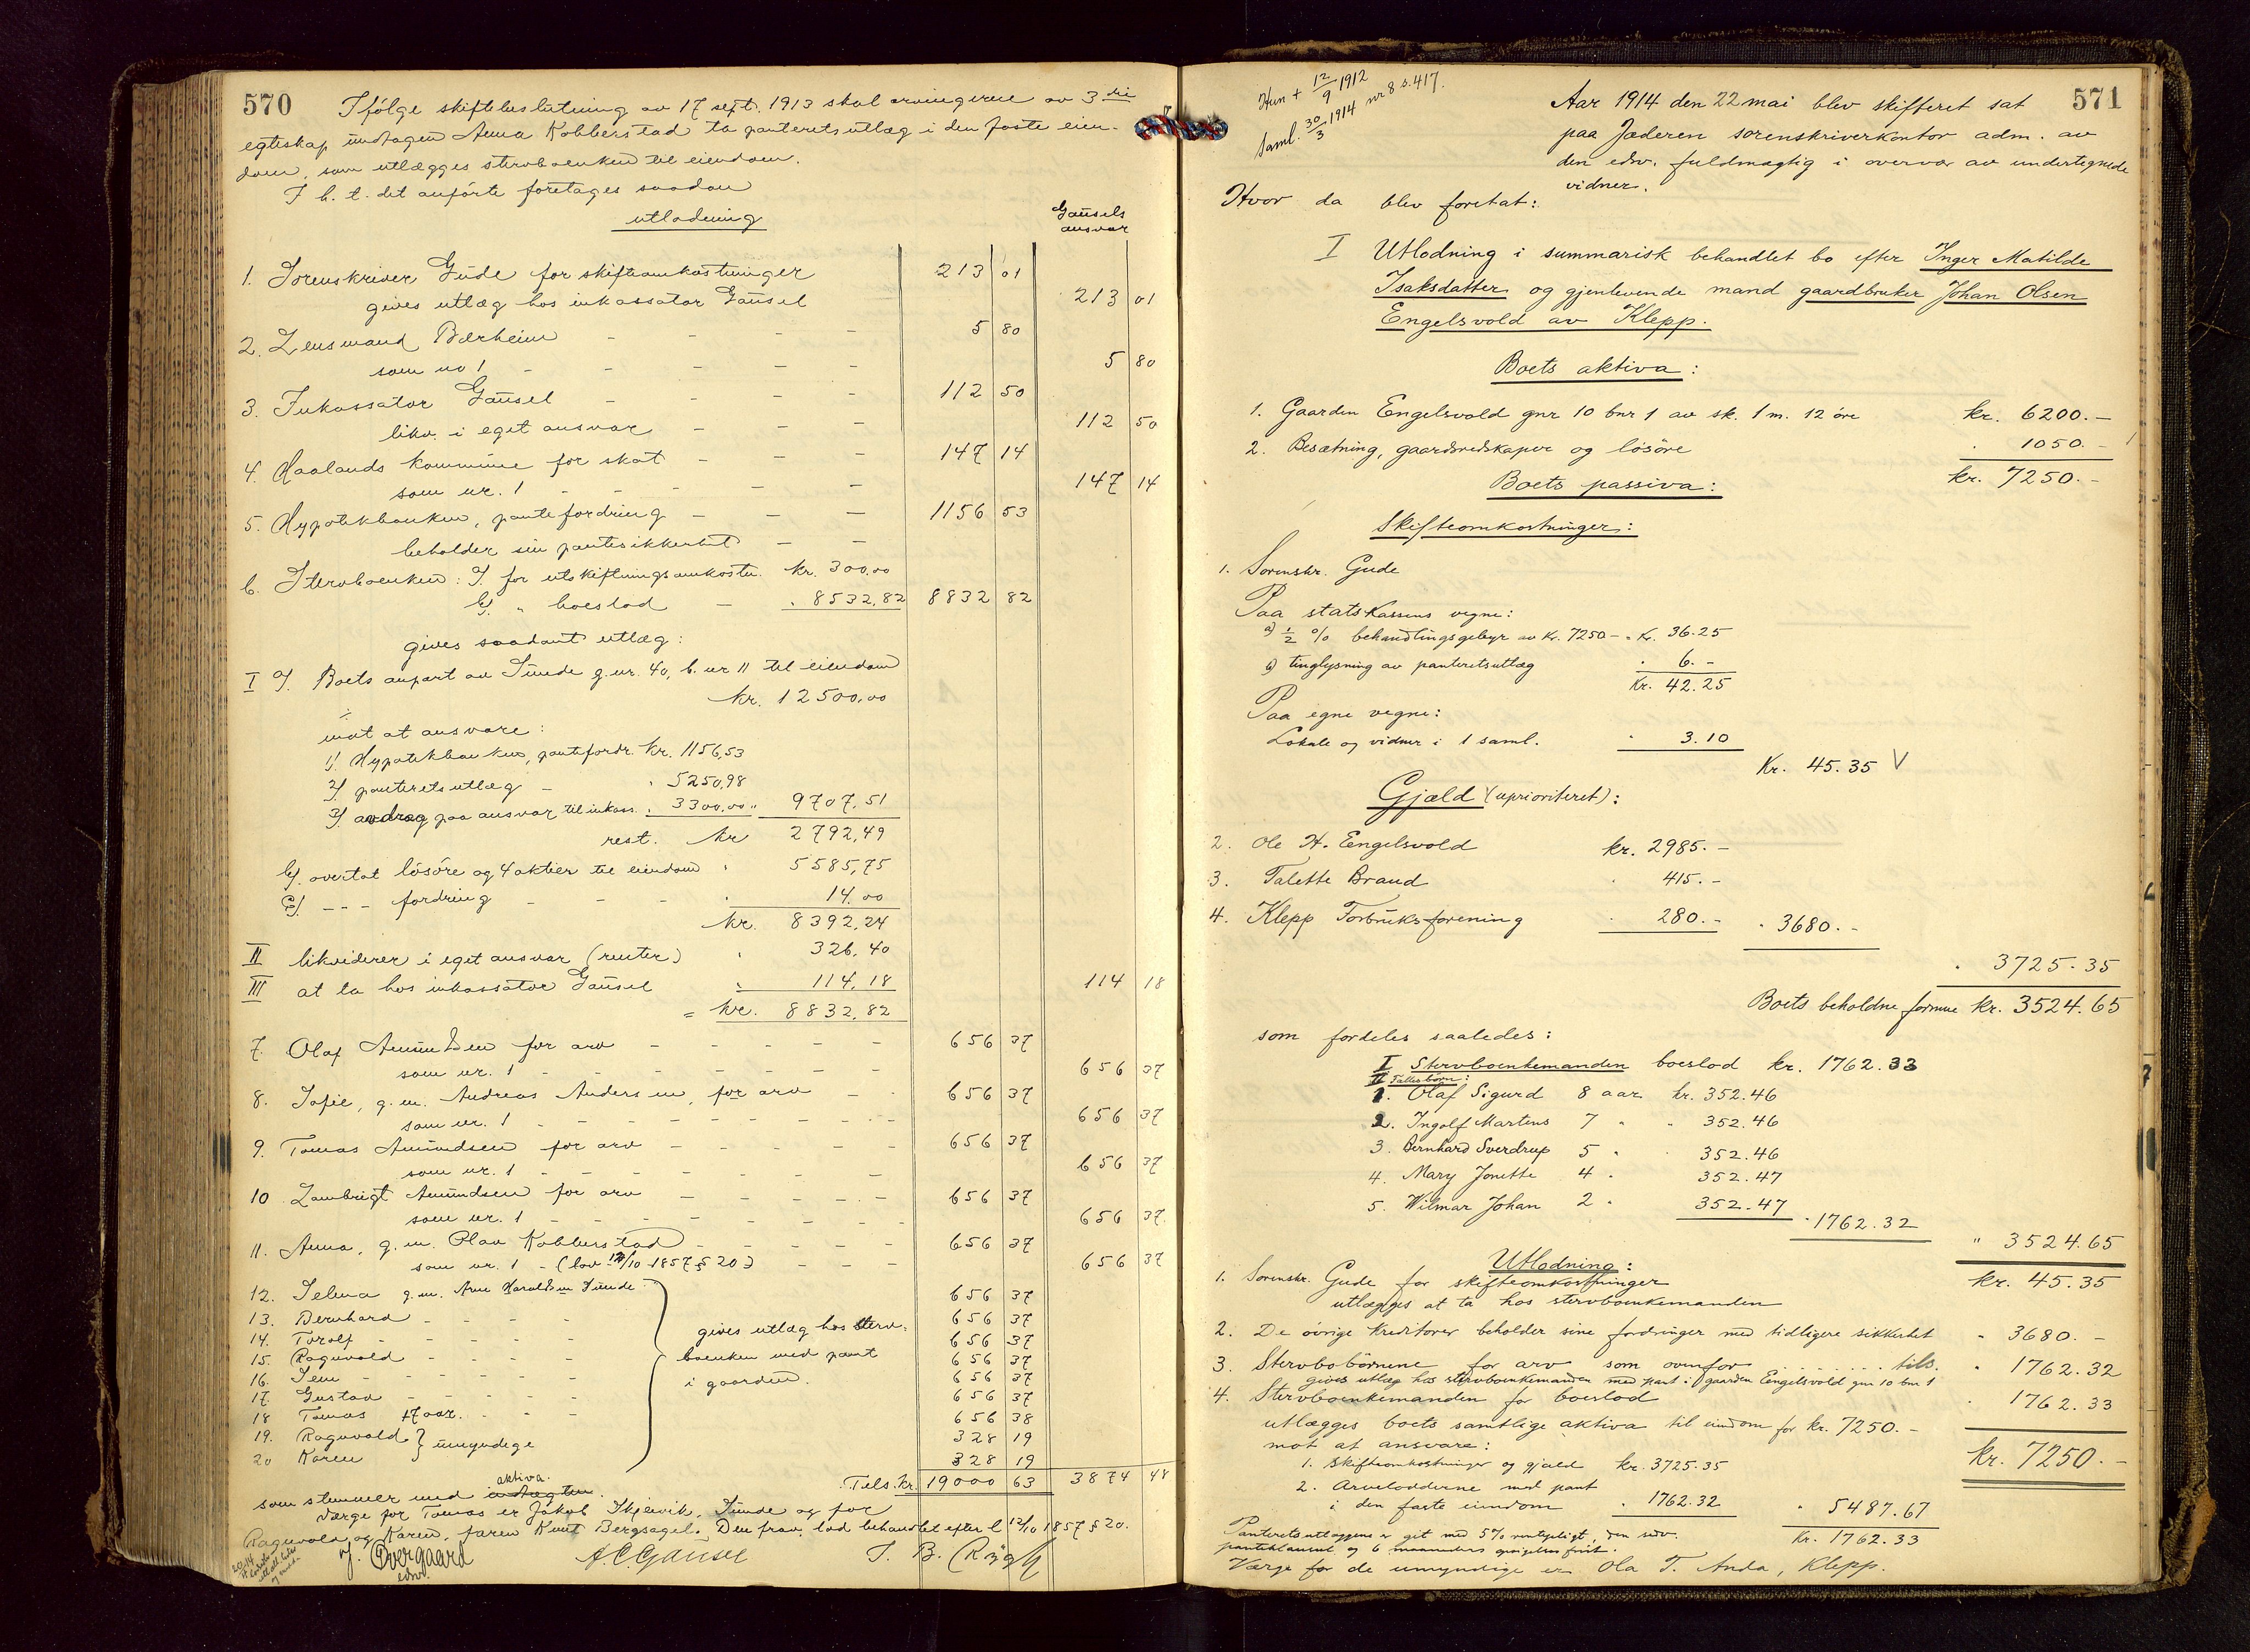 570
Ifølge skiftebeslutning av 17 sept. 1913 skal arvingerne av 3die
egteskap undtagen Anna Kobberstad ta panteretsutlæg i den faste eien-
dom, som utlægges stervboenken til eiendom.
I h. t. det anførte foretages saadan
utlodning
Gausels
ansvar
1. Sorenskriver Gude for skifteomkostninger 213 01
gives utlæg hos inkassator Gausel 213 01
2. Lensmand Bærheim - - - - 5 80
som no 1 - - - - - 5 80
3. Inkassator Gausel - - - - 112 50
likv. i eget ansvar - - - 112 50
4. Haalands kommune for skat - - - 147 14
som nr. 1 - - - - - 147 14
5. Hypotekbanken, pantefordring - - - 1156 53
beholder sin pantesikkerhet - -
6. Stervboenken: a/ for utskiftningsomkostn. kr. 300,00
b/ " boeslod - " 8532,82 8832 82
gives saadant utlæg:
I a/. Boets anpart av Sunde g.nr. 40, b.nr 11 til eiendom
kr. 12500,00
÷
mot at ansvare:
1/. Hypotekbankens, pantefordr. kr. 1156,53
2/ panteretsutlæg - " 5250,98
3/ avdrag paa ansvar til inkass. " 3300,00 " 9707,51
rest. kr 2792,49
b/. overtat løsøre og 4 aktier til eiendom " 5585,75
c/. - - - fordring - - - " 14.00
kr. 8392,24
II likviderer i eget ansvar (renter) " 326,40
III at ta hos inkassator Gausel " 114,18 114 18
= kr. 8832,82
7. Olaf Amundsen for arv - - - - 656 37
som nr. 1 - - - - - 656 37
8. Sofie, g.m. Andreas Andersen, for arv - - 656 37
som nr. 1 - - - - - 656 37
9. Tomas Amundsen for arv - - - - 656 37
som nr. 1 - - - - - 656 37
10 Lambrigt Amundsen for arv - - - - 656 37
som nr. 1 - - - - - 656 37.
11. Anna, g.m. Olav Kobberstad - - - - 656 37
som nr. 1 - (lov 12/10 1857 § 20) - - - 656 37
12. Selma g.m. Arne Haraldsen Sunde - 656 37
13. Bernhard - - - - 656 37
14. Torolf - - - - 656 37
15. Ragnvald - - - - 656 37
16. Jenn - - - - 656 37
17. Gustav - - - - 656 37
18 Tomas 17 aar. - - - 656 38
19. Ragnvald } umyndige 328 19
20 Karen 328 19
gives utlæg hos sterv-
boenken med pant
i gaarden.
Tils. kr. 19000 63 3874 48
aktiva.
som stemmer med
Værge for Tomas er Jakob Skjævik, Sunde og for
Ragnvald og Karen, faren Knut Bergsagel. Den frav. lod behandlet efter l 12/10 1857 § 20.
J. Øvergaard
edsv.
A.C. Gausel
571
Hun + 12/9 1912
Saml: 30/3 1914 nr 8 s. 417.
Aar 1914 den 22 mai blev skifteret sat
paa Jæderen sorenskriverkontor adm. av
den edsv. fuldmægtig i overvær av undertegnede
vidner.
Hvor da blev foretat:
I Utlodning i summarisk behandlet bo efter Inger Matilde
Isaksdatter og gjenlevende mand gaardbruker Johan Olsen
Engelsvold av Klepp.
Boets aktiva:
1. Gaarden Engelsvold gnr 10 bnr 1 av sk. 1 m. 12 øre kr. 6200.-
2. Besætning, gaardsredskaper og løsøre " 1050.-
Boets passiva: kr. 7250.-
Skifteomkostninger:
1. Sorenskr. Gude
Paa statskassens vegne:
a) 1/2 % behandlingsgebyr av kr. 7250 - " Kr. 36.25
b) tinglysning av panteretsutlæg " 6.-
Kr. 42.25
Paa egne vegne:
Lokale og vidner i 1 saml. " 3.10
Kr. 45.35 V
Gjæld (uprioriteret):
2. Ole H. Engelsvold kr. 2985.-
3. Talette Braud " 415.-
4. Klepp Forbruksforening " 280.- " 3680.-
" 3725.35
Boets beholdne formue kr. 3524.65
som fordeles saaledes:
I Stervboenkemanden boeslod kr. 1762.33
II Fællesbørn:
1. Olaf Sigurd 8 aar kr. 352.46
2. Ingolf Martens 7 " " 352.46
3. Bernhard Sverdrup 5 " " 352.46
4. Mary Jonette 4 " 352.47
5. Wilmar Johan 2 " 352.47
" 1762.32
" 3524.65
Utlodning:
1. Sorenskr. Gude for skifteomkostninger kr. 45.35
utlægges at ta hos stervboenkemanden
2. De øvrige kreditorer beholder sine fordringer med tidligere sikkerhet " 3680.-
3. Stervbobørnene for arv som ovenfor . . . . . . . tils. " 1762.32
gives utlæg hos stervboenkemanden med pant i gaarden Engelsvold gnr 10 bnr 1
4. Stervboenkemanden for boeslod " 1762.33
utlægges boets samtlige aktiva til eiendom for kr. 7250.-
mot at ansvare: kr. 7250.-
1. skifteomkostninger og gjæld kr. 3725.35
2. Arvelodderne med pant
i den faste eiendom " 1762.32 " 5487.67
Kr. 1762.33
Panteretsutlæggene er git med 5% rentepligt, den sedv.
panteklausul og 6 maaneders opsigelses frist.
Værge for de umyndige er Ola T. Anda, Klepp.